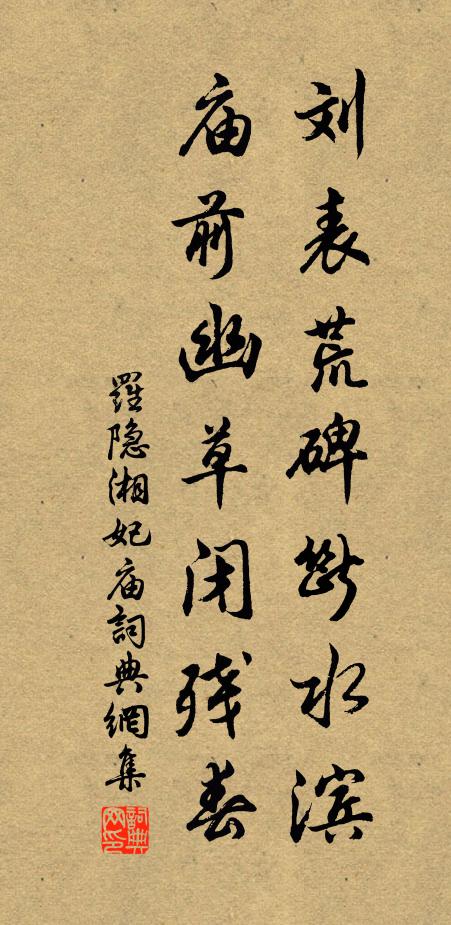 刘表荒碑断水滨
庙前幽草闭残春
羅隐湘妃庙詞典網集
詞典网印